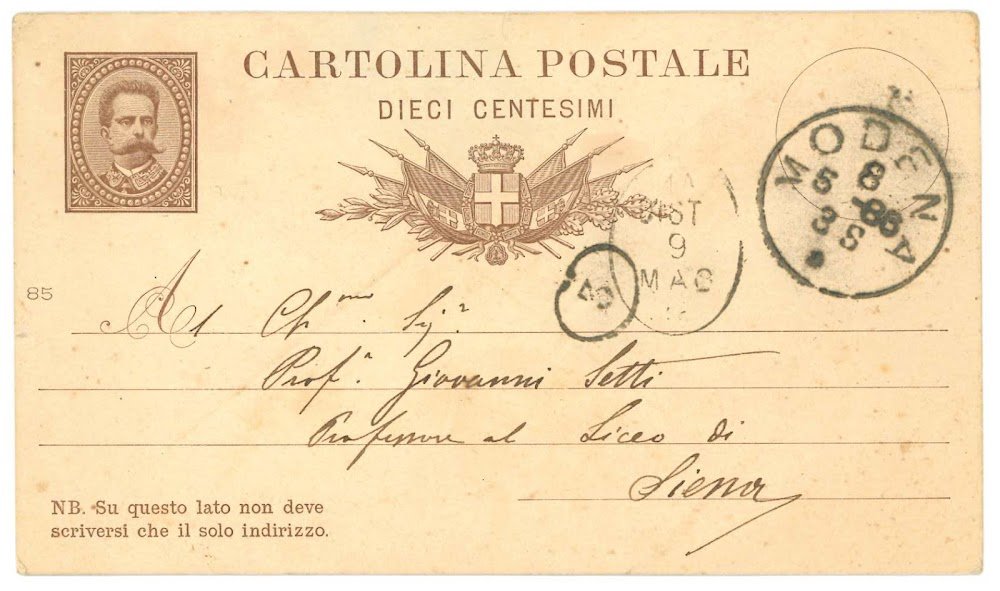 CARTOLINA POSTALE
DIECI CENTESIMI
MODENA
8
5 - 86
3 S
9
MAG
85
Al Ch.mo Sig.r
Prof.r Giovanni Setti
Professore al Liceo di
Siena
NB. Su questo lato non deve
scriversi che il solo indirizzo.